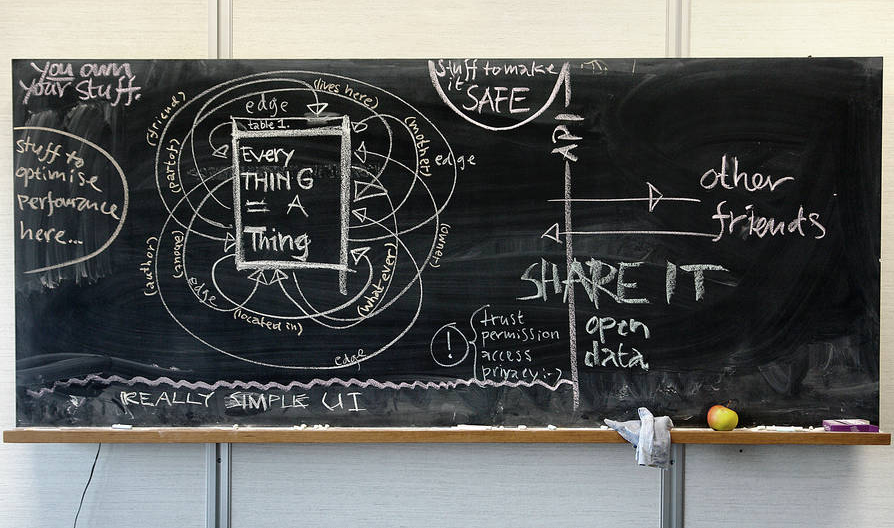 You own
your stuff.
stuff to
optimise
performance
here...
(friend)
(part of)
edge
(lives here)
table 1.
Every
THING
= A
Thing
(mother)
edge
(owner)
(author)
edge
(located in)
(what ever)
edge
stuff to make
it
SAFE
API
other
friends
SHARE IT
open
data
!
trust
permission
access
privacy :-)
REALLY SIMPLE UI